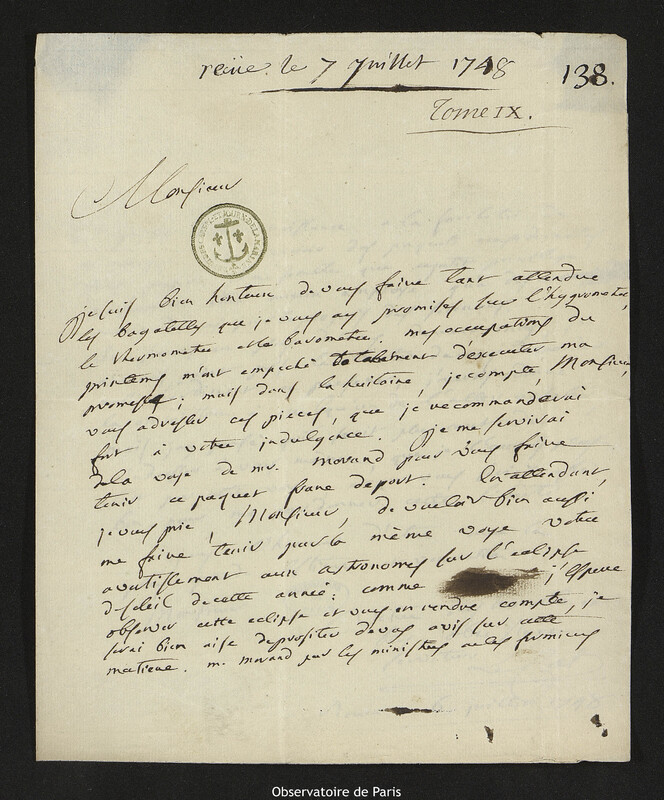 reçüe. le 7 Juillet 1748
138.
Tome IX.
Monsieur
je suis bien honteux de vous faire tant attendre
les bagatelles que je vous ay promises sur l'hygrometre,
le thermometre et le barometre. mes occupations du
printems m'ont empeché totalement d'executer ma
promesse; mais dans la huitaine, je compte, Monsieur,
vous adresser ces pieces, que je recommanderai
fort à votre indulgence. Je me servirai
de la voye de mr. Morand pour vous faire
tenir ce paquet franc de port. En attendant,
je vous prie, Monsieur, de vouloir bien aussi
me faire tenir par la même voye votre
avertissement aux astronomes sur l'eclipse
de soleil de cette année; comme j'espere
observer cette eclipse et vous en rendre compte, je
serai bien aise de profiter de vos avis sur cette
matiere. mr. morand par les ministres ou les fermiers
Observatoire de Paris